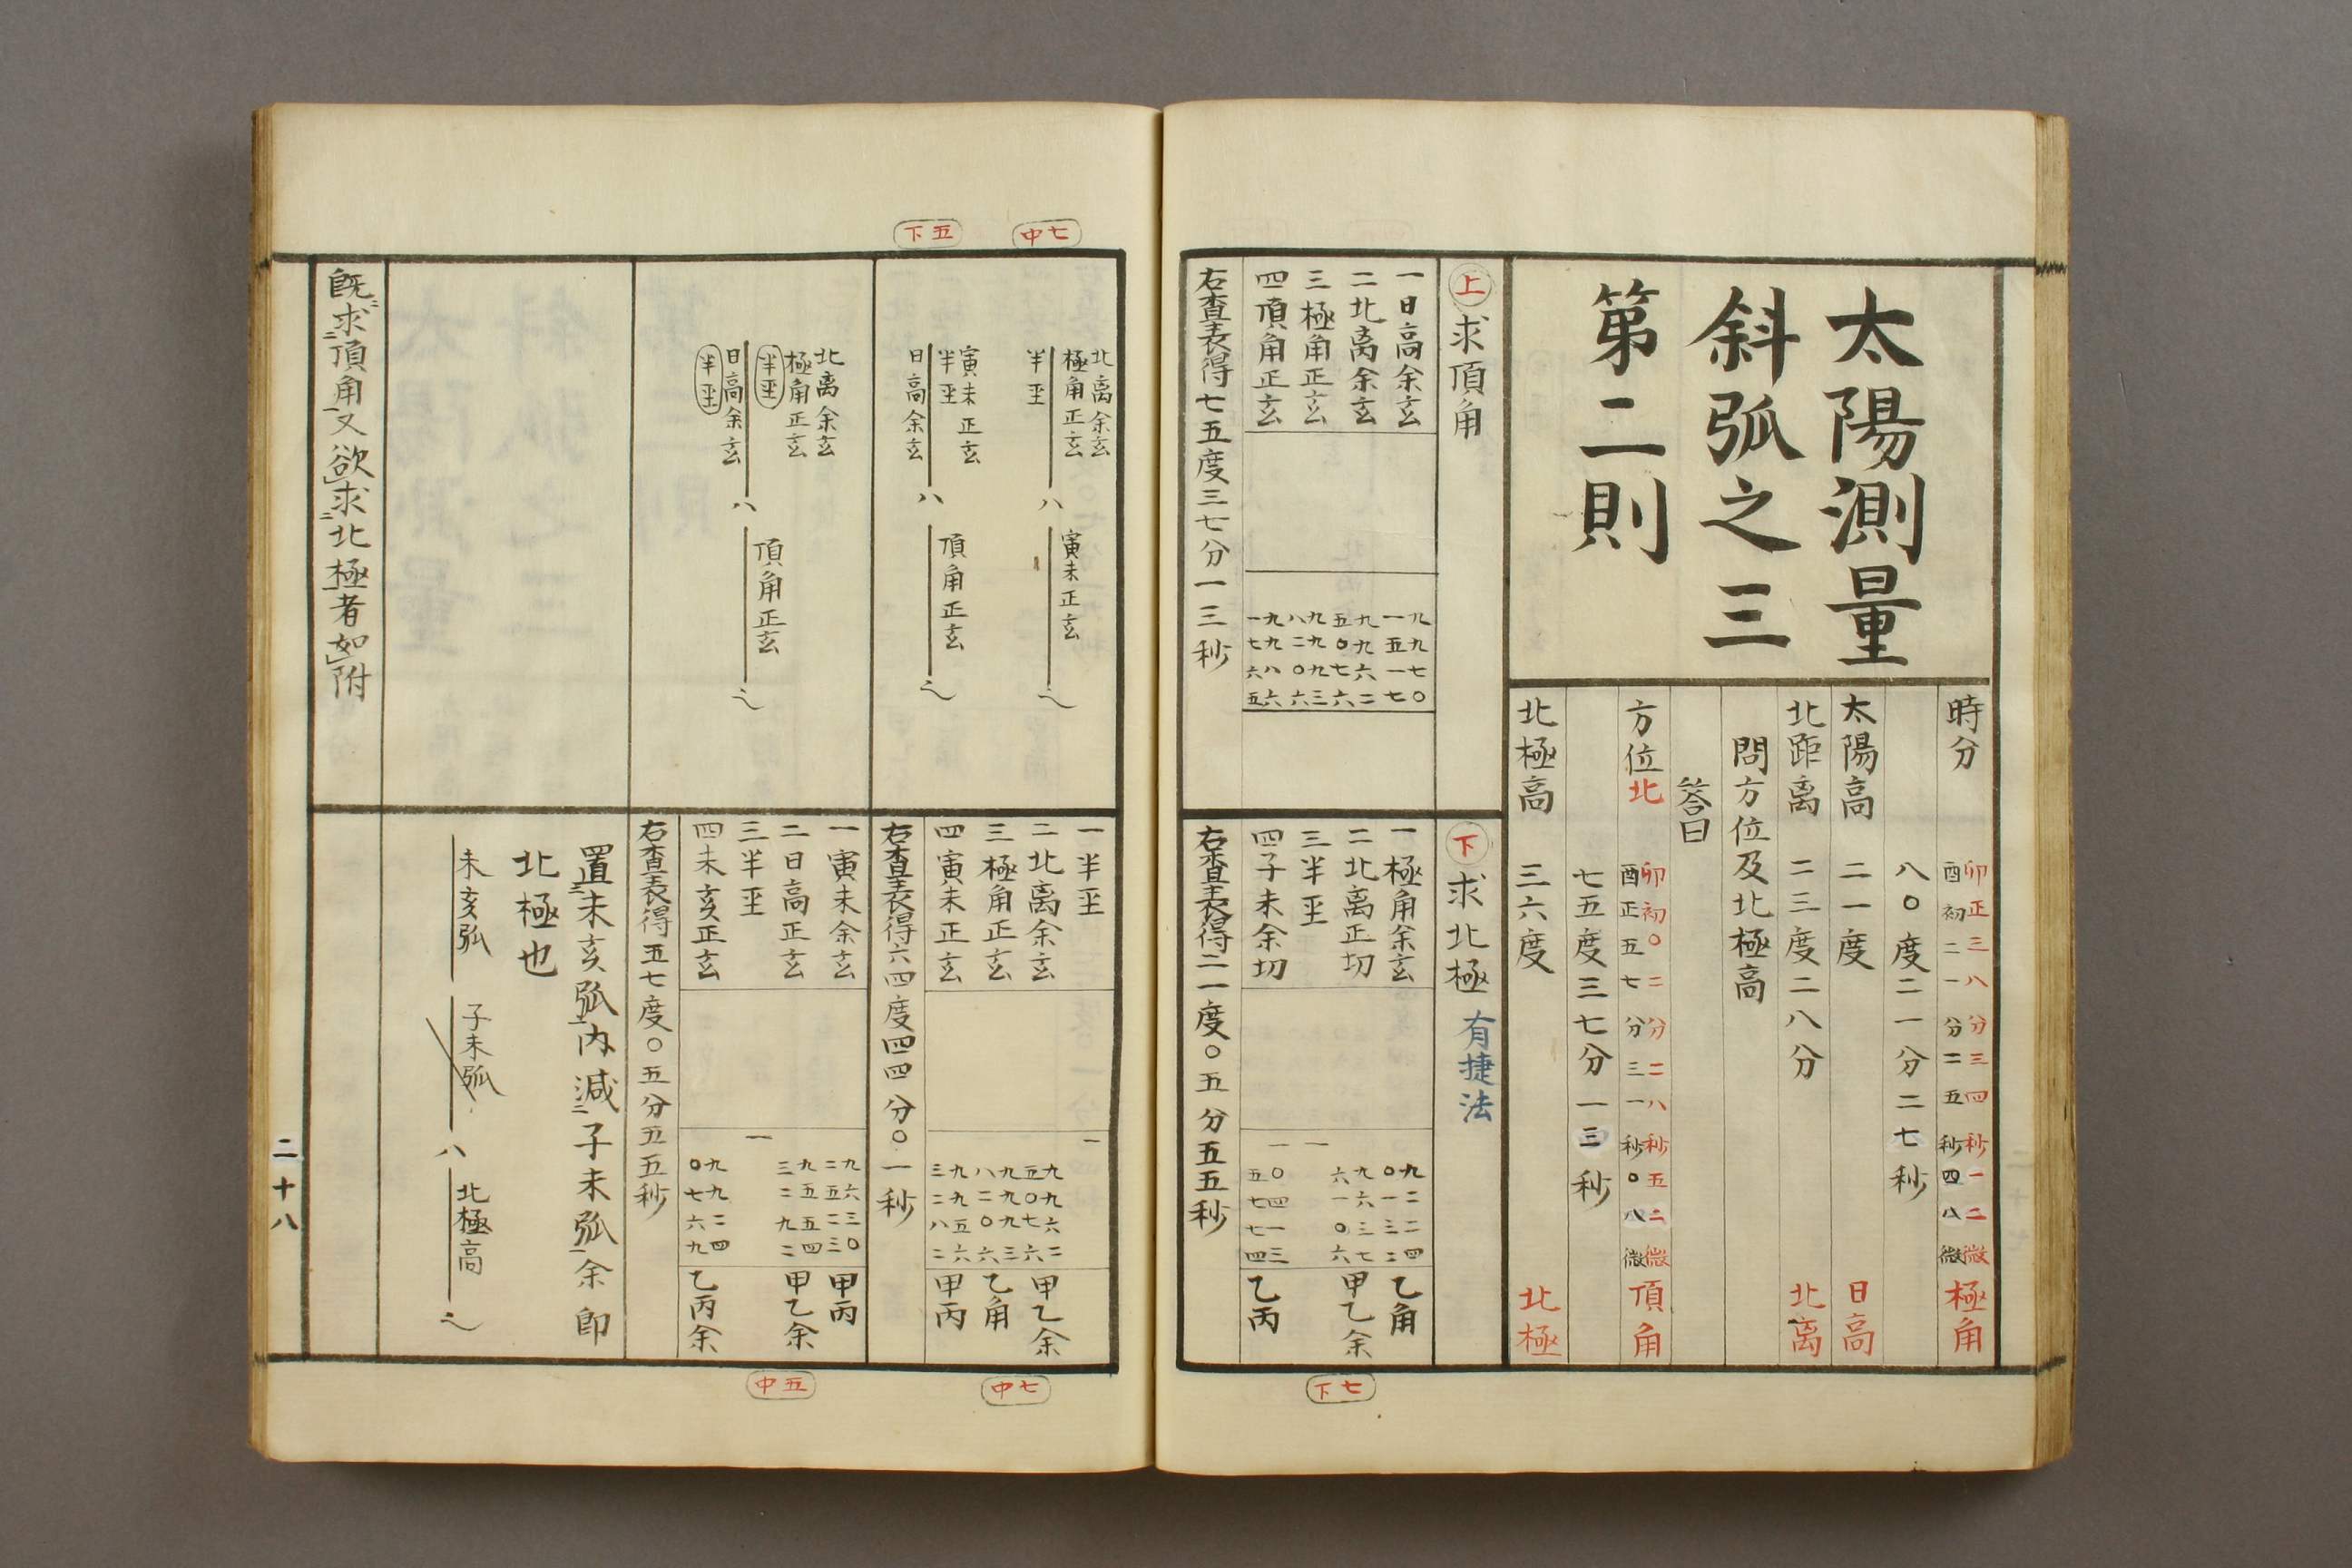 太陽測量
斜弧之三
第二則
時分 卯正三八分三四秒一二微 極角
酉初二一分二五秒四八微
八〇度二一分二七秒
太陽高 二一度 日高
北距离 二三度二八分 北离
問方位及北極高
答曰
方位北 卯初〇二分二八秒五二微 頂角
酉正五七分三一秒〇八微
七五度三七分一三秒
北極高 三六度 北極
上 求頂角
一日高余玄 九九七〇一五一七
二北离余玄 九九六二五〇七六
三極角正玄 九九九三八二〇六
四頂角正玄 九九八六一七六五
右査表得七五度三七分一三秒
下 求北極 有捷法
一極角余玄 九二二四〇一三二 乙角
二北离正切 九六三七六一〇六 甲乙余
三半巠 一
四子未余切 一〇四一三五七七四 乙丙
右査表得二一度〇五分五五秒
七下
七中
五下
北离余玄
極角正玄
半巠
八
寅未正玄
寅未正玄
半巠
日高余玄
八
頂角正玄
北离余玄
極角正玄
半巠
日高余玄
半巠
八
頂角正玄
一半巠 一
二北离余玄 九九六二五〇七六 甲乙余
三極角正玄 九九九三八二〇六 乙角
四寅未正玄 九九五六三二八二 甲丙
右査表得六四度四四分〇一秒
一寅未余玄 九六三〇二五二三 甲丙
二日高正玄 九五五四三二九二 甲乙余
三半巠 一
四未亥正玄 九九二四〇七六九 乙丙余
右査表得五七度〇五分五五秒
置未亥弧内減子未弧余即
北極也
未亥弧 子未弧 八 北極高
既求頂角又欲求北極者如附
七中
五中
二十八